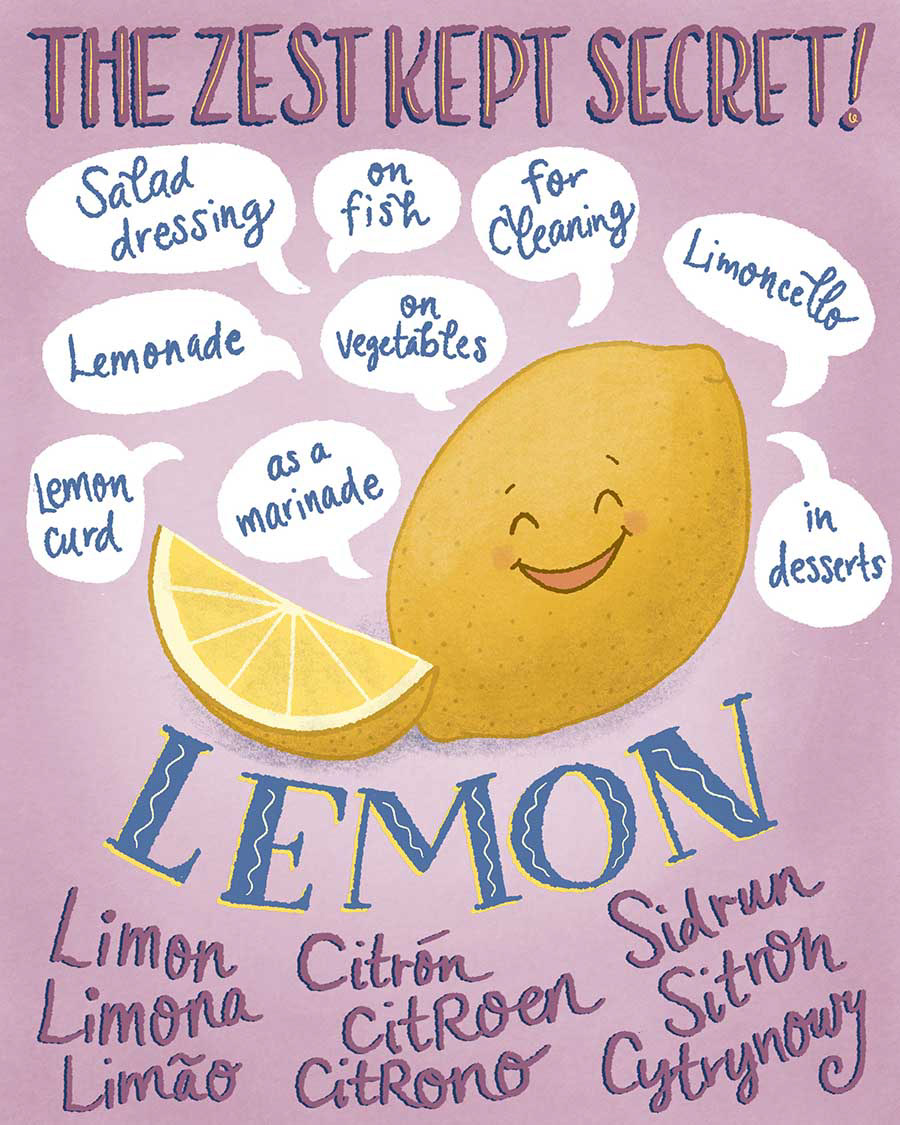 THE ZEST KEPT SECRET!
Salad
dressing
on
fish
for
cleaning
Limoncello
Lemonade
on
vegetables
Lemon
curd
as a
marinade
in
desserts
LEMON
Limon
Limona
Limão
Citrón
CitRoen
CitRono
Sidrun
Sitron
Cytrynowy